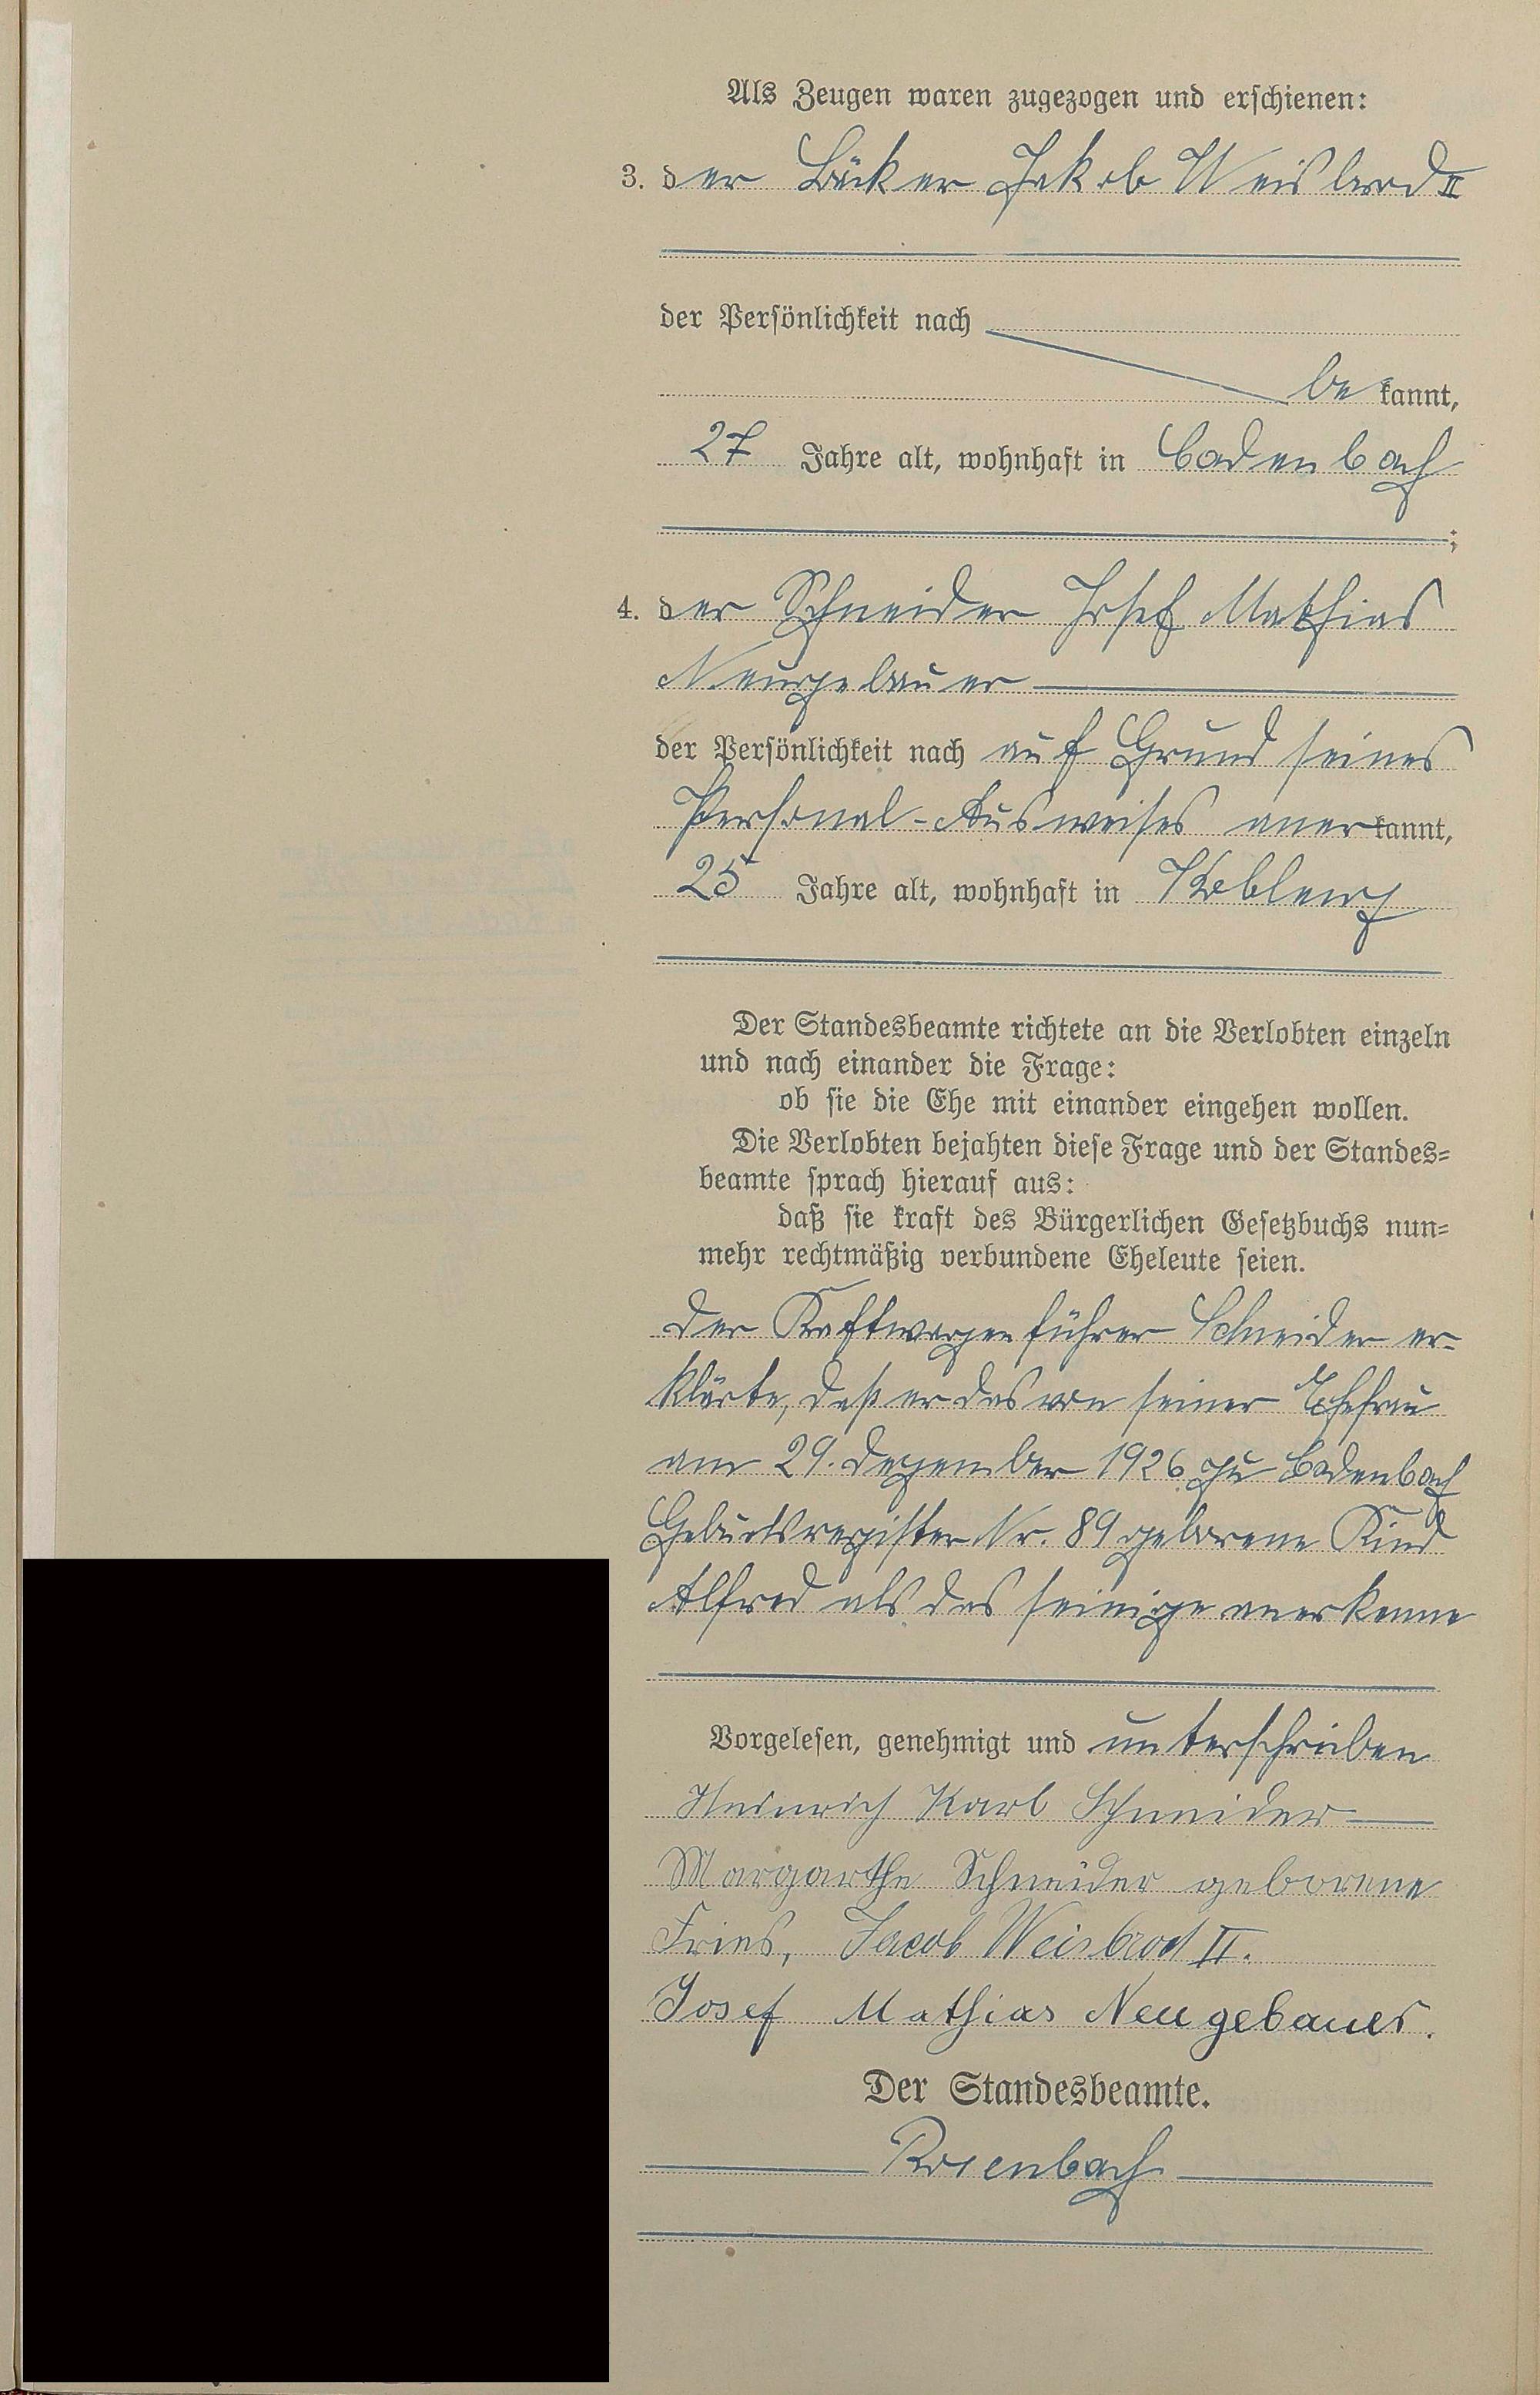 Als Zeugen waren zugezogen und erschienen:
3. der Bäcker Jakob Weisbrod II
der Persönlichkeit nach
bekannt,
27 Jahre alt, wohnhaft in Badenbach
;
4. der Schneider Josef Mathias
Neugebauer
der Persönlichkeit nach auf Grund seines
Personal-Ausweises anerkannt,
25 Jahre alt, wohnhaft in Koblenz
Der Standesbeamte richtete an die Verlobten einzeln
und nach einander die Frage:
ob sie die Ehe mit einander eingehen wollen.
Die Verlobten bejahten diese Frage und der Standes-
beamte sprach hierauf aus:
daß sie kraft des Bürgerlichen Gesetzbuchs nun-
mehr rechtmäßig verbundene Eheleute seien.
Der Kraftwagenführer Schneider er-
klärte, daß er das von seiner Ehefrau
am 29. Dezember 1926 zu Badenbach
Geburtsregister Nr. 89 geborene Kind
Alfred als das seinige anerkenne
Vorgelesen, genehmigt und unterschrieben
Heinrich Karl Schneider
Margarthe Schneider geborene
Fries, Jacob Weisbrod II.
Josef Mathias Neugebauer.
Der Standesbeamte.